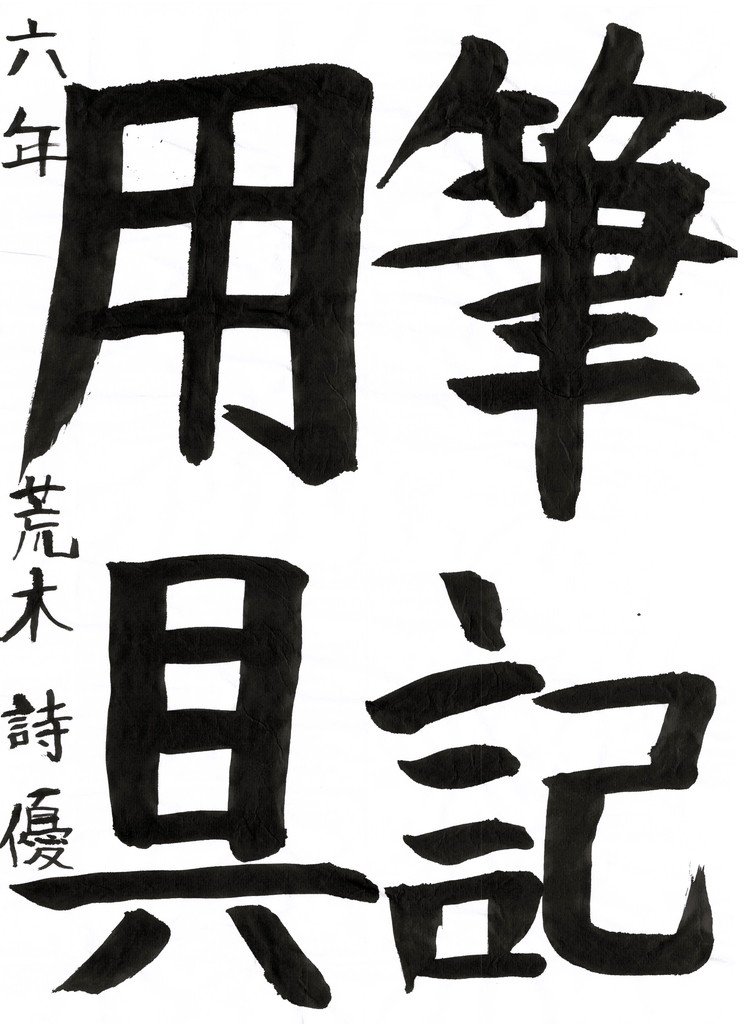 筆記
用具
六年 荒木 詩優